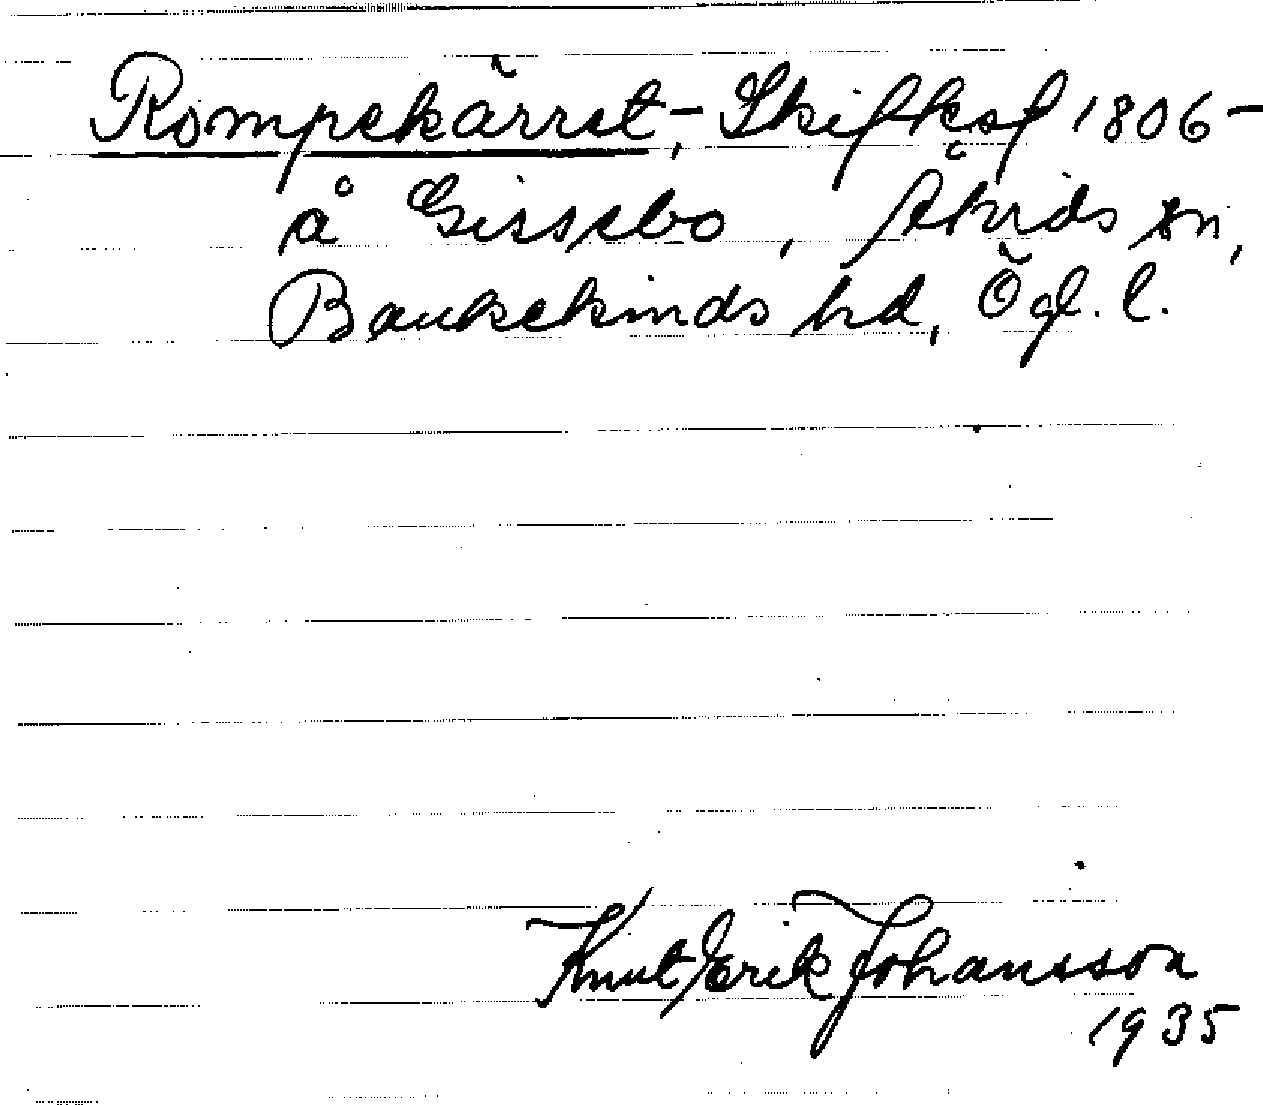 Rompekärret, - Skifksf 1806 -
å Gissebo, Åtvids sn,
Bankekinds hd, Ögl. l.
Knut Erik Johansson
1935